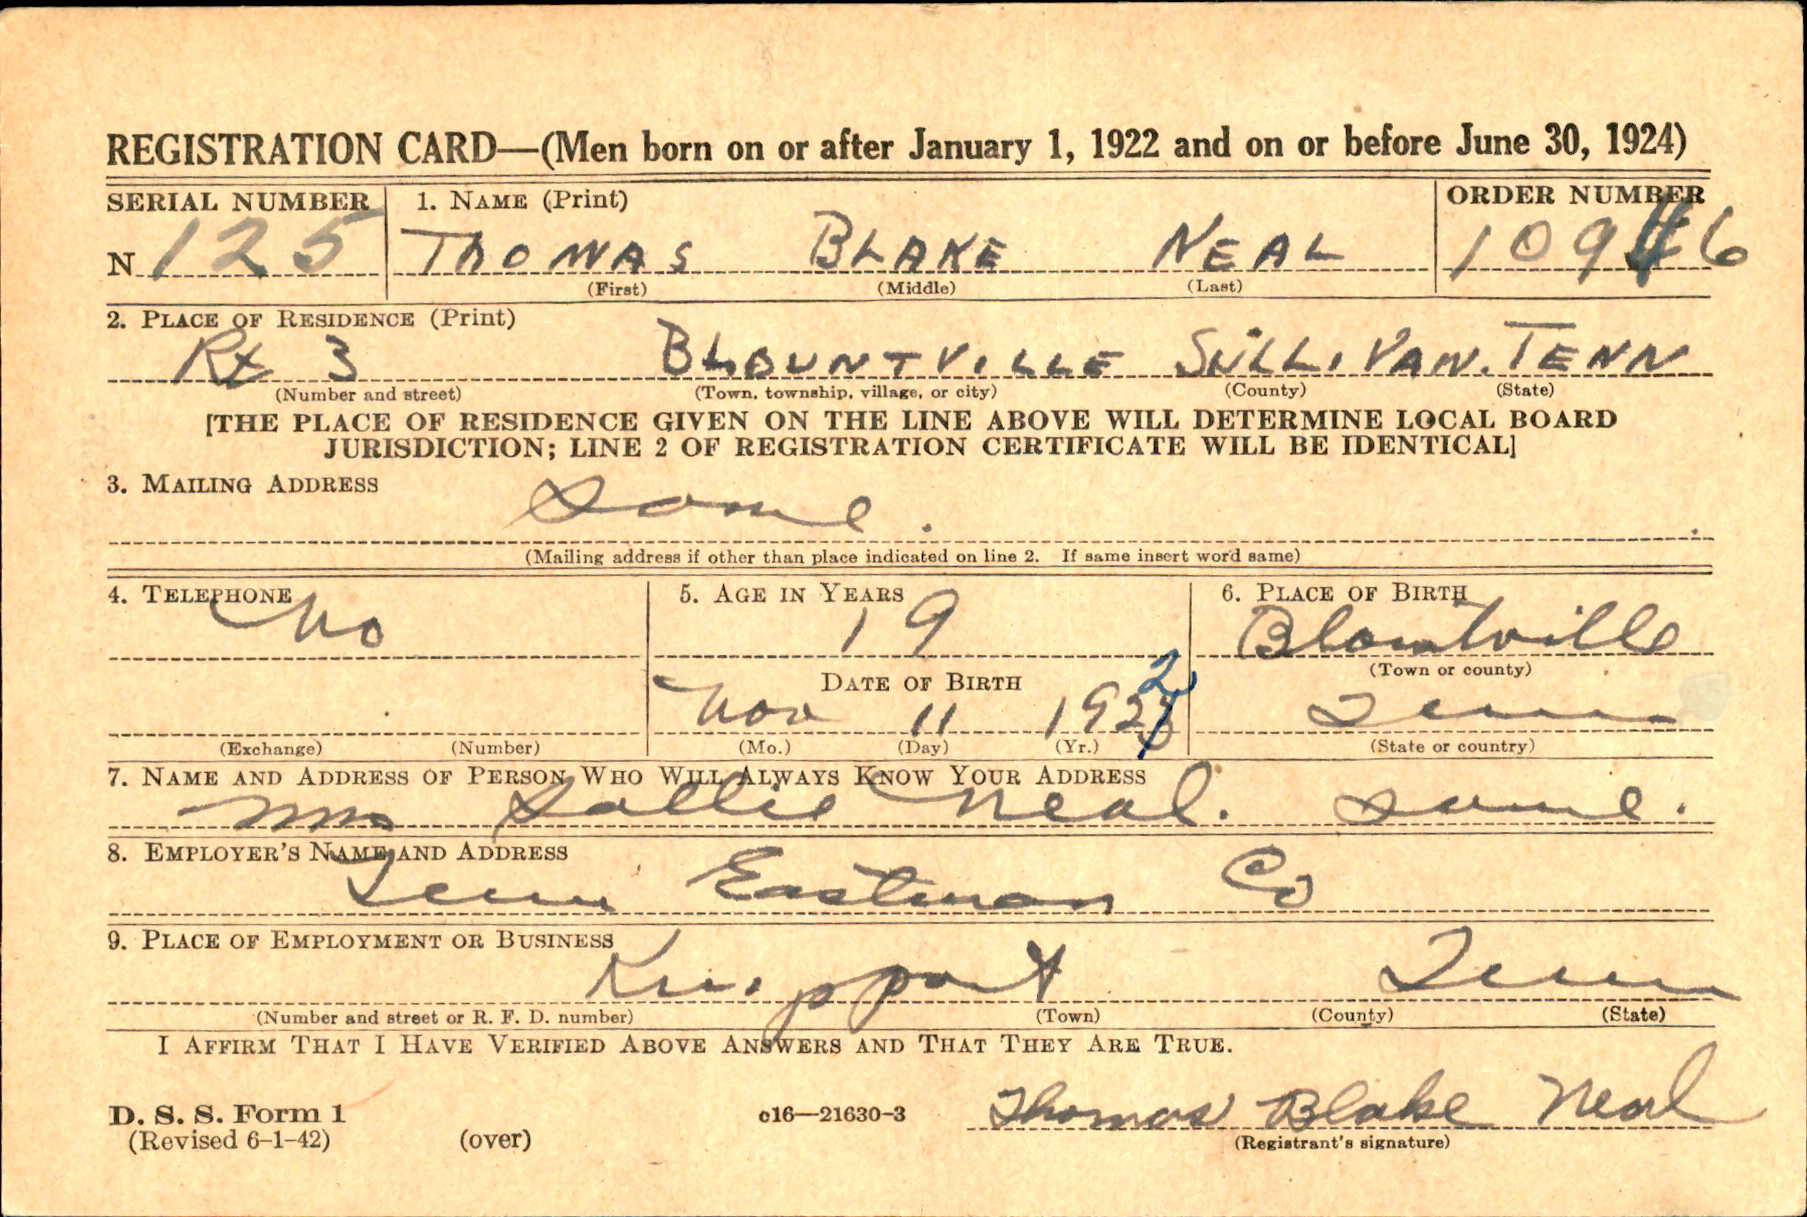 REGISTRATION CARD—(Men born on or after January 1, 1922 and on or before June 30, 1924)
SERIAL NUMBER 1. NAME (Print) ORDER NUMBER
N 125 THOMAS BLAKE NEAL 10946
(First) (Middle) (Last)
2. PLACE OF RESIDENCE (Print)
Rt 3 BLOUNTVILLE SULLIVAN. TENN
(Number and street) (Town, township, village, or city) (County) (State)
[THE PLACE OF RESIDENCE GIVEN ON THE LINE ABOVE WILL DETERMINE LOCAL BOARD
JURISDICTION; LINE 2 OF REGISTRATION CERTIFICATE WILL BE IDENTICAL]
3. MAILING ADDRESS
Same.
(Mailing address if other than place indicated on line 2. If same insert word same)
4. TELEPHONE 5. AGE IN YEARS 6. PLACE OF BIRTH
No 19 Blountville
(Town or county)
DATE OF BIRTH
Nov 11 1922 Tenn
(Exchange) (Number) (Mo.) (Day) (Yr.) (State or country)
7. NAME AND ADDRESS OF PERSON WHO WILL ALWAYS KNOW YOUR ADDRESS
Mrs Sallie Neal. Same.
8. EMPLOYER'S NAME AND ADDRESS
Tenn Eastman Co
9. PLACE OF EMPLOYMENT OR BUSINESS
Kingsport Tenn
(Number and street or R. F. D. number) (Town) (County) (State)
I AFFIRM THAT I HAVE VERIFIED ABOVE ANSWERS AND THAT THEY ARE TRUE.
D. S. S. Form 1 c16—21630-3 Thomas Blake Neal
(Revised 6-1-42) (over) (Registrant's signature)